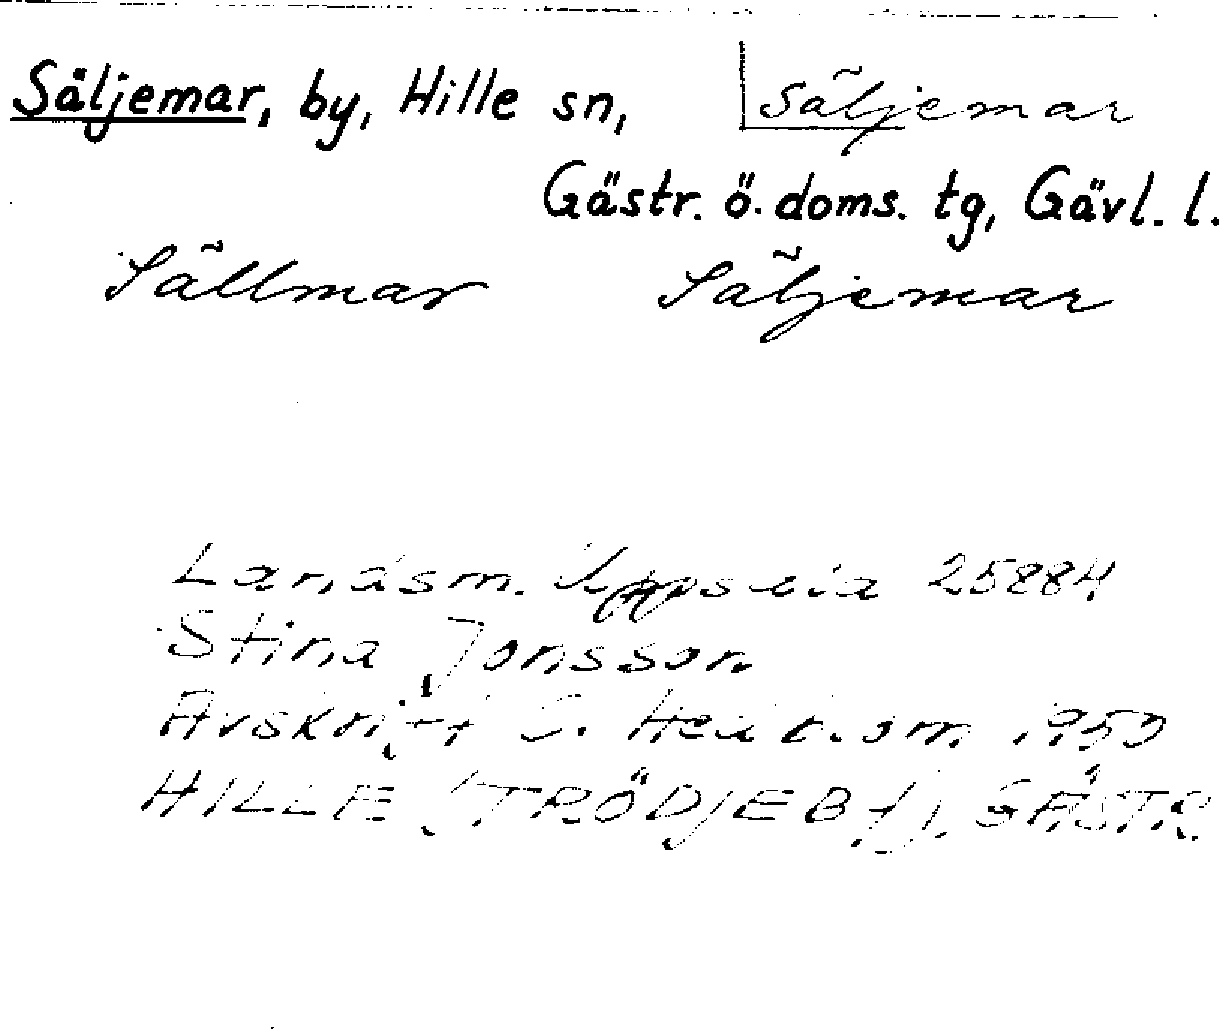 Säljemar, by, Hille sn, Säljemar
Gästr. ö. doms. tg, Gävl. l.
Sällmar Säljemar
Landsm. Uppsala 25884
Stina Jonsson
Avskrift 1950
HILLE (TRÖDJEBY), GÄSTR.